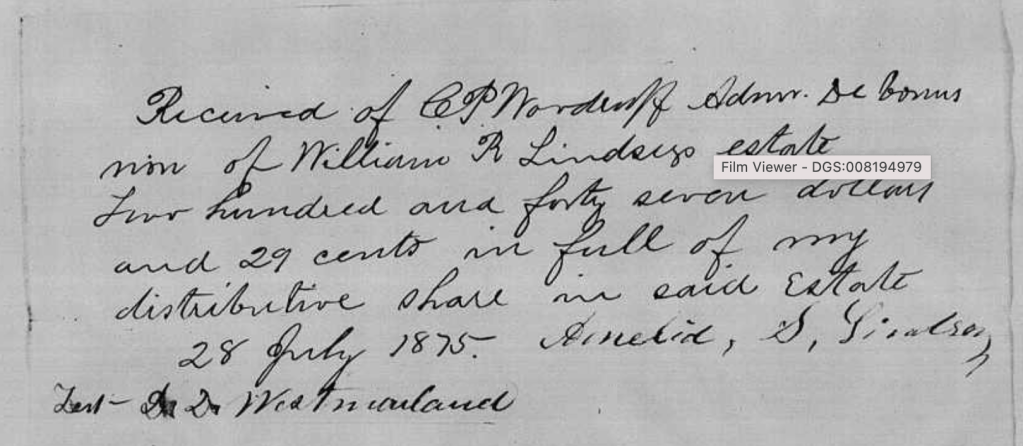 Received of C P Woodruff Admr. De bonus
non of William R Lindseys estate
Film Viewer - DGS:008194979
Two hundred and forty seven dollars
and 29 cents in full of my
distributive share in said Estate
28 July 1875. Amelia, S,
Test - D. Westmorland